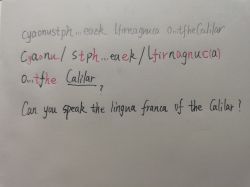 cyaonustph...eaek lfirnagnuca o...tfheCalilar
Cyaonu/stph...eaek/lfirnagnuc(a)
o...tfhe Calilar
?
Can you speak the lingua franca of the Calilar?